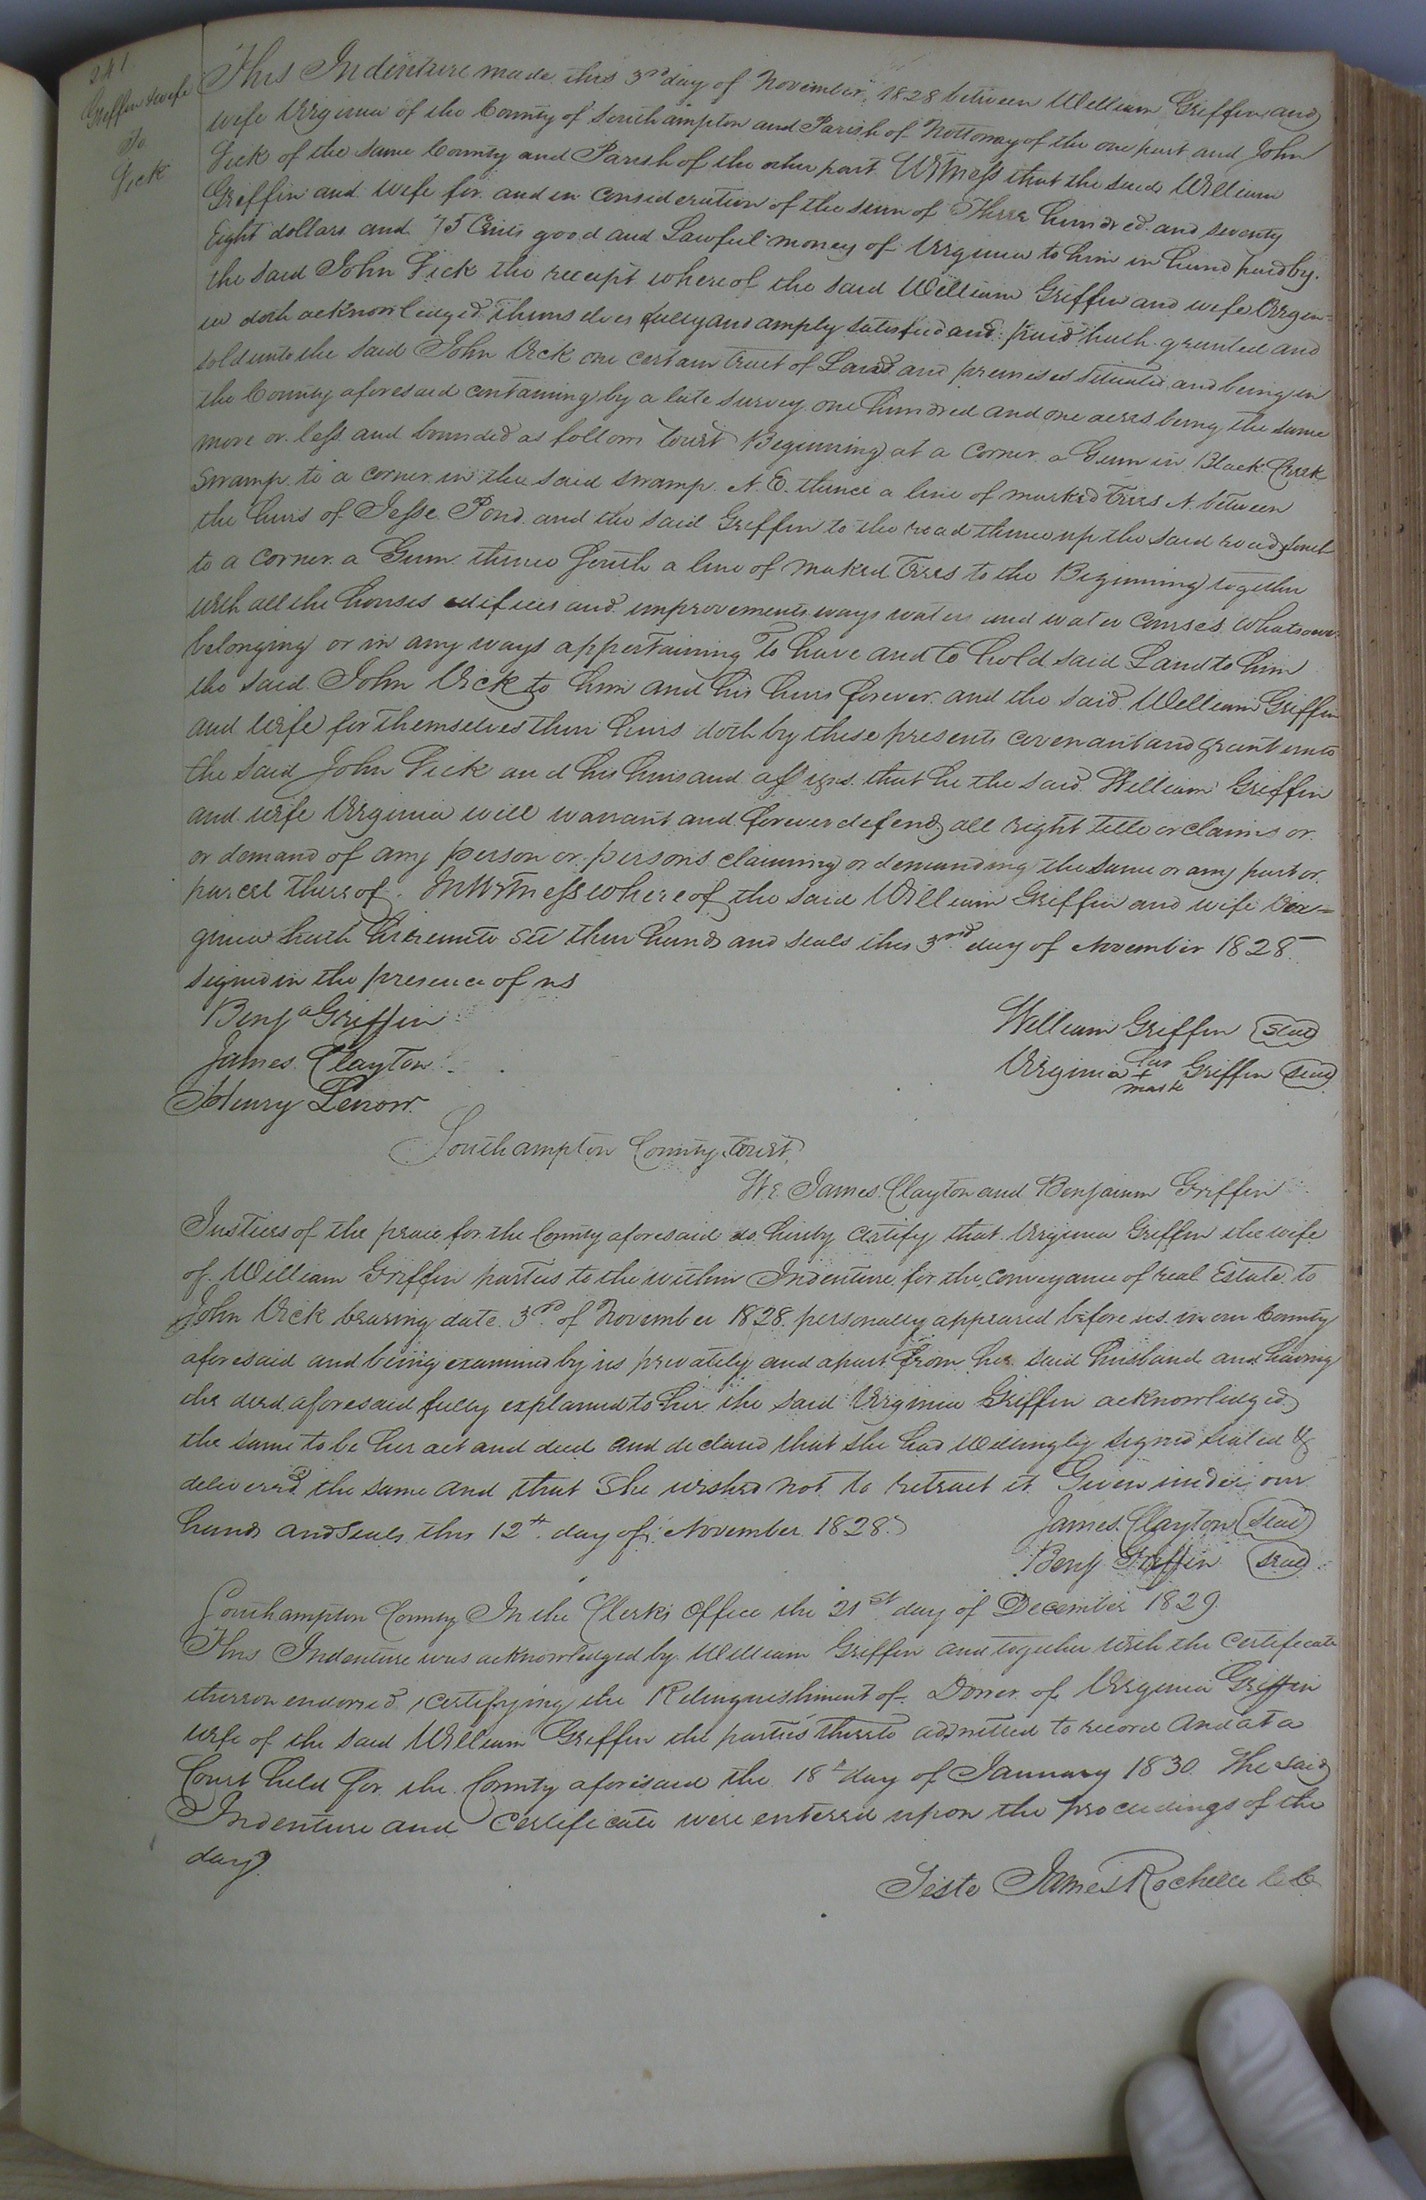 241
Griffin & wife
To
Vick
This Indenture made this 3rd day of November, 1828 between William Griffin and
wife Virginia of the County of Southampton and Parish of Nottoway of the one part and John
Vick of the same County and Parish of the other part Witness that the said William
Griffin and wife for and in consideration of the sum of Three hundred and seventy
Eight dollars and 75 Cents good and Lawful money of Virginia to him in hand paid by
the said John Vick the receipt whereof the said William Griffin and wife Virgin=
ia doth acknowledged themselves fully and amply satisfied and paid hath granted and
sold unto the said John Vick one certain tract of Land and premises situated and being in
the County aforesaid containing by a late survey one hundred and one acres being the same
more or less and bounded as follows towit Beginning at a corner a Gum in Black Creek
Swamp to a corner in the said swamp N. E. thence a line of marked trees N. between
the heirs of Jesse Pond and the said Griffin to the road thence up the said road South
to a corner a Gum thence South a line of maked trees to the Beginning together
with all the houses edifices and improvements ways waters and water courses whatsoever
belonging or in any ways appertaining To have and to hold said Land to him
the said John Vick to him and his heirs forever and the said William Griffin
and wife for themselves their heirs doth by these presents covenant and grant unto
the said John Vick and his heirs and assigns that he the said William Griffin
and wife Virginia will warrant and forever defend all right title or claims or
or demand of any person or persons claiming or demanding the same or any part or
parcel thereof. In Witness whereof the said William Griffin and wife Vir=
ginia hath hereunto set their hands and seals this 3rd day of November 1828.
signed in the presence of us
Benja Griffin
William Griffin Seal
James Clayton
Virginia her + mark Griffin Seal
Henry Lenow
Southampton County towit,
We James Clayton and Benjamin Griffin
Justices of the peace for the County aforesaid do hereby certify that Virginia Griffin the wife
of William Griffin parties to the within Indenture for the conveyance of real Estate to
John Vick bearing date 3rd of November 1828 personally appeared before us in our County
aforesaid and being examined by us privately and apart from her said husband and having
the deed aforesaid fully explained to her the said Virginia Griffin acknowledged
the same to be her act and deed and declared that she had willingly signed sealed &
delivered the same and that she wished not to retract it Given under our
hands and seals this 12th day of November 1828.
James Clayton Seal
Benj Griffin Seal
Southampton County In the Clerk's Office the 21st day of December 1829.
This Indenture was acknowledged by William Griffin and together with the certificate
thereon endorsed, certifying the Relinquishment of Dower of Virginia Griffin
wife of the said William Griffin the parties thereto admitted to record And at a
Court held for the County aforesaid the 18th day of January 1830. The said
Indenture and Certificate were entered upon the proceedings of the
day.
Teste James Rochelle C.C.